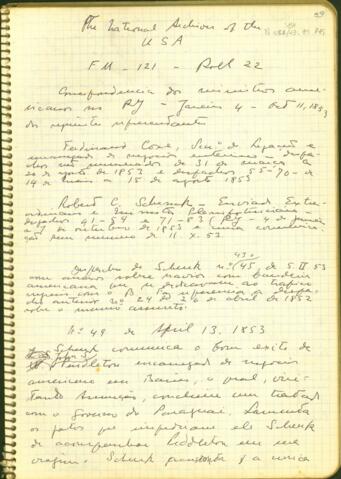 49
The National Archives of the
USA
FM - 121 - Roll 22
Correspondencia dos ministros ame-
ricanos no RJ - Janeiro 4 - Oct 11, 1853
dos seguintes representantes
Ferdinand Coxe, Secr. de Legação e
encarregado de negocios
de 31 de março
de agosto de 1853 e despachos 55-70 - de
14 de maio a 15 de agosto 1853
Robert C. Schenck - Enviado Extra-
ordinario e Ministro Plenipotenciario -
despachos 41-54 e 71-73 ( RJ 4 de janeiro
a 7 de outubro de 1853 e uma comunica-
ção sem numero de 11.X.53.
Despacho de Schenck nº 45 de 5.II.53
com anexos sobre navios com bandeira
americana que se dedicavam ao trafico
anterior nº 24 de de abril de 1852
sobre o mesmo assunto.
Nº 49 de April 13, 1853
Schenck comunica o bom exito de
Pendleton encarregado de negocios
americano em Buenos, o qual, visi-
tando Assunção, concluiu um tratado
com o Governo do Paraguai. Lamenta
os fatos que impediram ele Schenck
de acompanhar Pendleton em sua
viagem. Schenck a unica